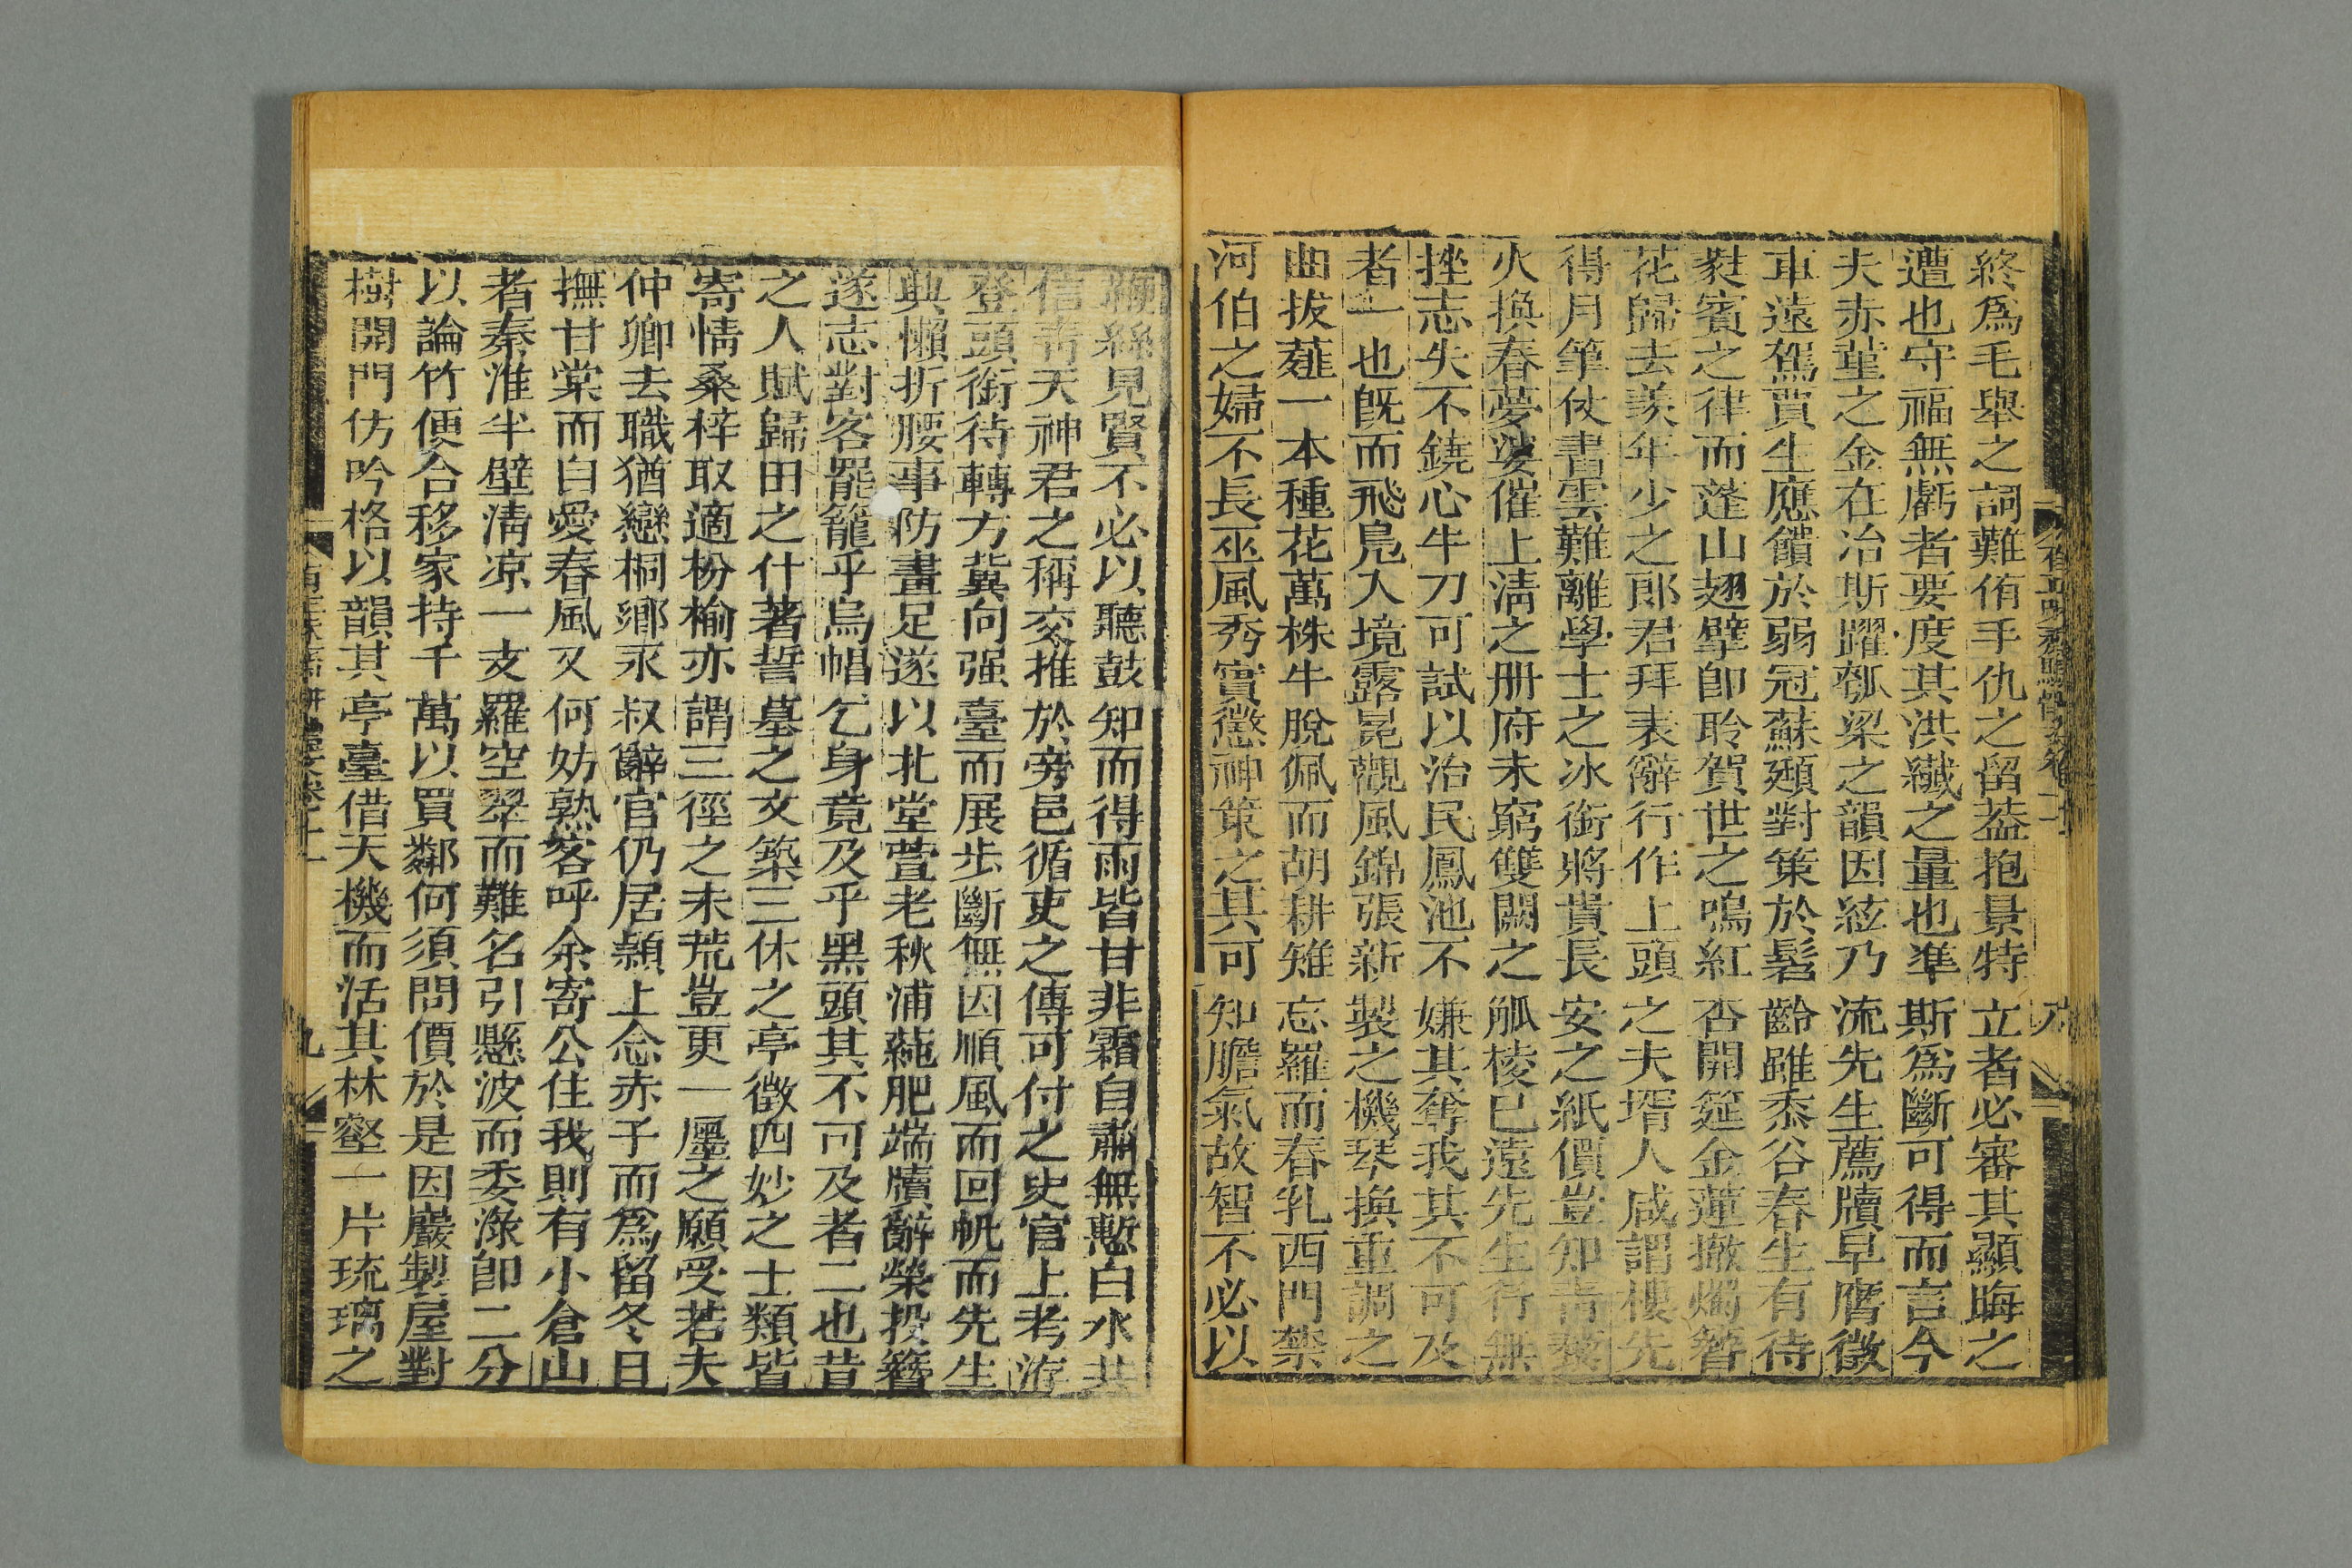 終爲毛舉之詞難侑手仇之留葢抱景特立者必審其顯晦之
遭也守福無虧者要度其洪纎之量也準斯爲斷可得而言今
夫赤堇之金在冶斯躍瓠梁之韻因絃乃流先生薦牘早膺徵
車遠駕賈生應饋於弱冠蘇頲對策於髫齡雖黍谷春生有待
蕤賓之律而蓬山翅擘卽聆賀世之鳴紅杏開筵金蓮撤燭簪
花歸去羨年少之郎君拜表辭行作上頭之夫壻人咸謂樓先
得月筆仗書雲難離學士之冰銜將貴長安之紙價豈知靑藜
火換春夢婆催上淸之册府未窮雙闕之觚棱已遠先生行無
挫志失不鐃心牛刀可試以治民鳳池不嫌其奪我其不可及
者一也旣而飛鳧入境露冕觀風錦張新製之機琴換重調之
曲拔薤一本種花萬株牛脫佩而胡耕雉忘羅而春乳西門禁
河伯之婦不長巫風秀實懲神策之其可知膽氣故智不必以
絲見賢不必以聽鼓知而得雨皆甘非霜自肅無慙白水共
信靑天神君之稱交推於旁邑循吏之傳可付之史官上考洊
登頭銜待轉方冀向强臺而展步斷無因順風而回帆而先生
典懶折腰事防畫足遂以北堂萱老秋浦蒓肥端牘辭榮投簪
遂志對客罷籠乎烏帽乞身竟及乎黑頭其不可及者二也昔
之人賦歸田之什著誓墓之文築三休之亭徵四妙之士類皆
寄情桑梓取適枌榆亦謂三徑之未荒豈更一廛之願受若夫
仲卿去職猶戀桐鄉永叔辭官仍居潁上念赤子而爲留冬日
撫甘棠而自愛春風又何妨熟客呼余寄公住我則有小倉山
者秦淮半壁淸凉一支羅空翠而難名引懸波而委淥卽二分
以論竹便合移家持千萬以買鄰何須問價於是因巖製屋對
樹開門仿吟格以韻其亭臺借天機而活其林壑一片琉璃之
九